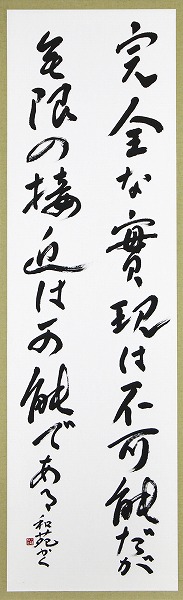 完全な實現は不可能だが
無限の接近は可能である
和苑かく